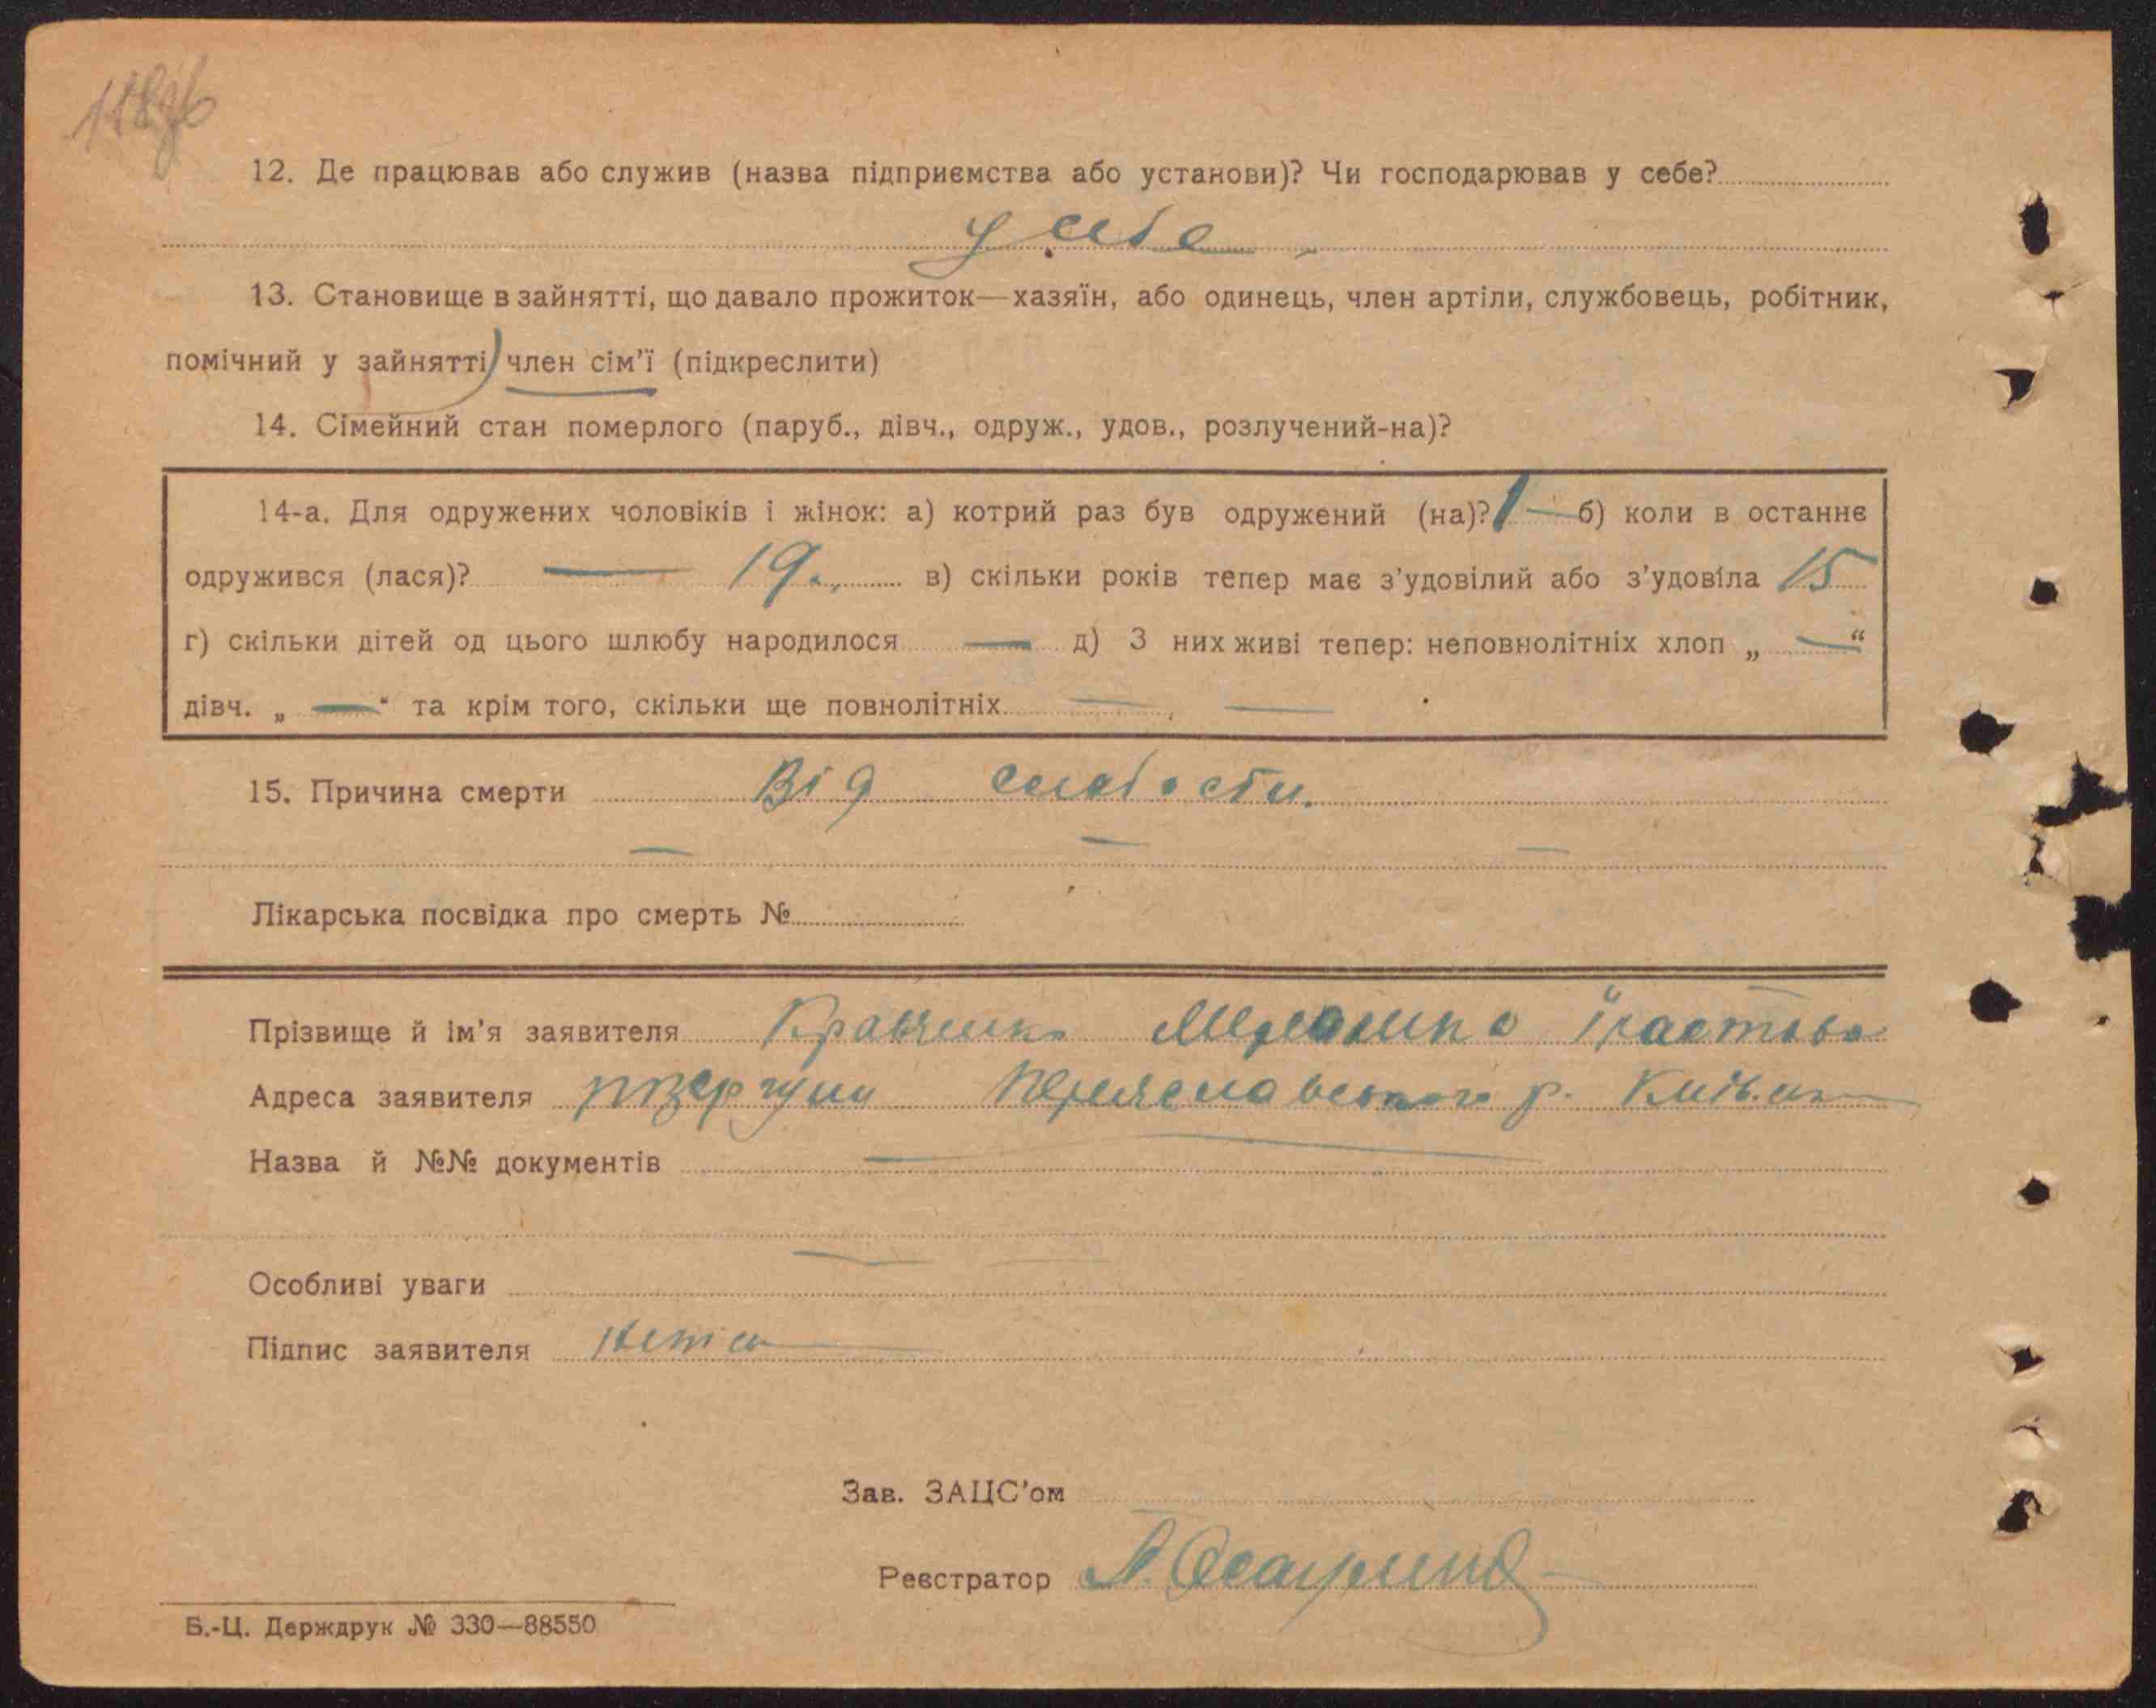 12. Де працював або служив (назва підприємства або установи)? Чи господарював у себе?
у себе
13. Становище в зайнятті, що давало прожиток—хазяїн, або одинець, член артіли, службовець, робітник,
помічний у зайнятті, член сім'ї (підкреслити)
14. Сімейний стан померлого (паруб., дівч., одруж., удов., розлучений-на)?
14-а. Для одружених чоловіків і жінок: а) котрий раз був одружений (на)? 1 — б) коли в останнє
одружився (лася)? — 19 в) скільки років тепер має з'удовілий або з'удовіла 15
г) скільки дітей од цього шлюбу народилося — д) З них живі тепер: неповнолітніх хлоп „ — “
дівч. „ — “ та крім того, скільки ще повнолітніх — —
15. Причина смерти Від слабости.
— — —
Лікарська посвідка про смерть №
Прізвище й ім'я заявителя Кравченко
Адреса заявителя Переяславського р. Київ.
Назва й №№ документів —
Особливі уваги
Підпис заявителя
Зав. ЗАЦС'ом
Реєстратор
Б.-Ц. Держдрук № 330—88550